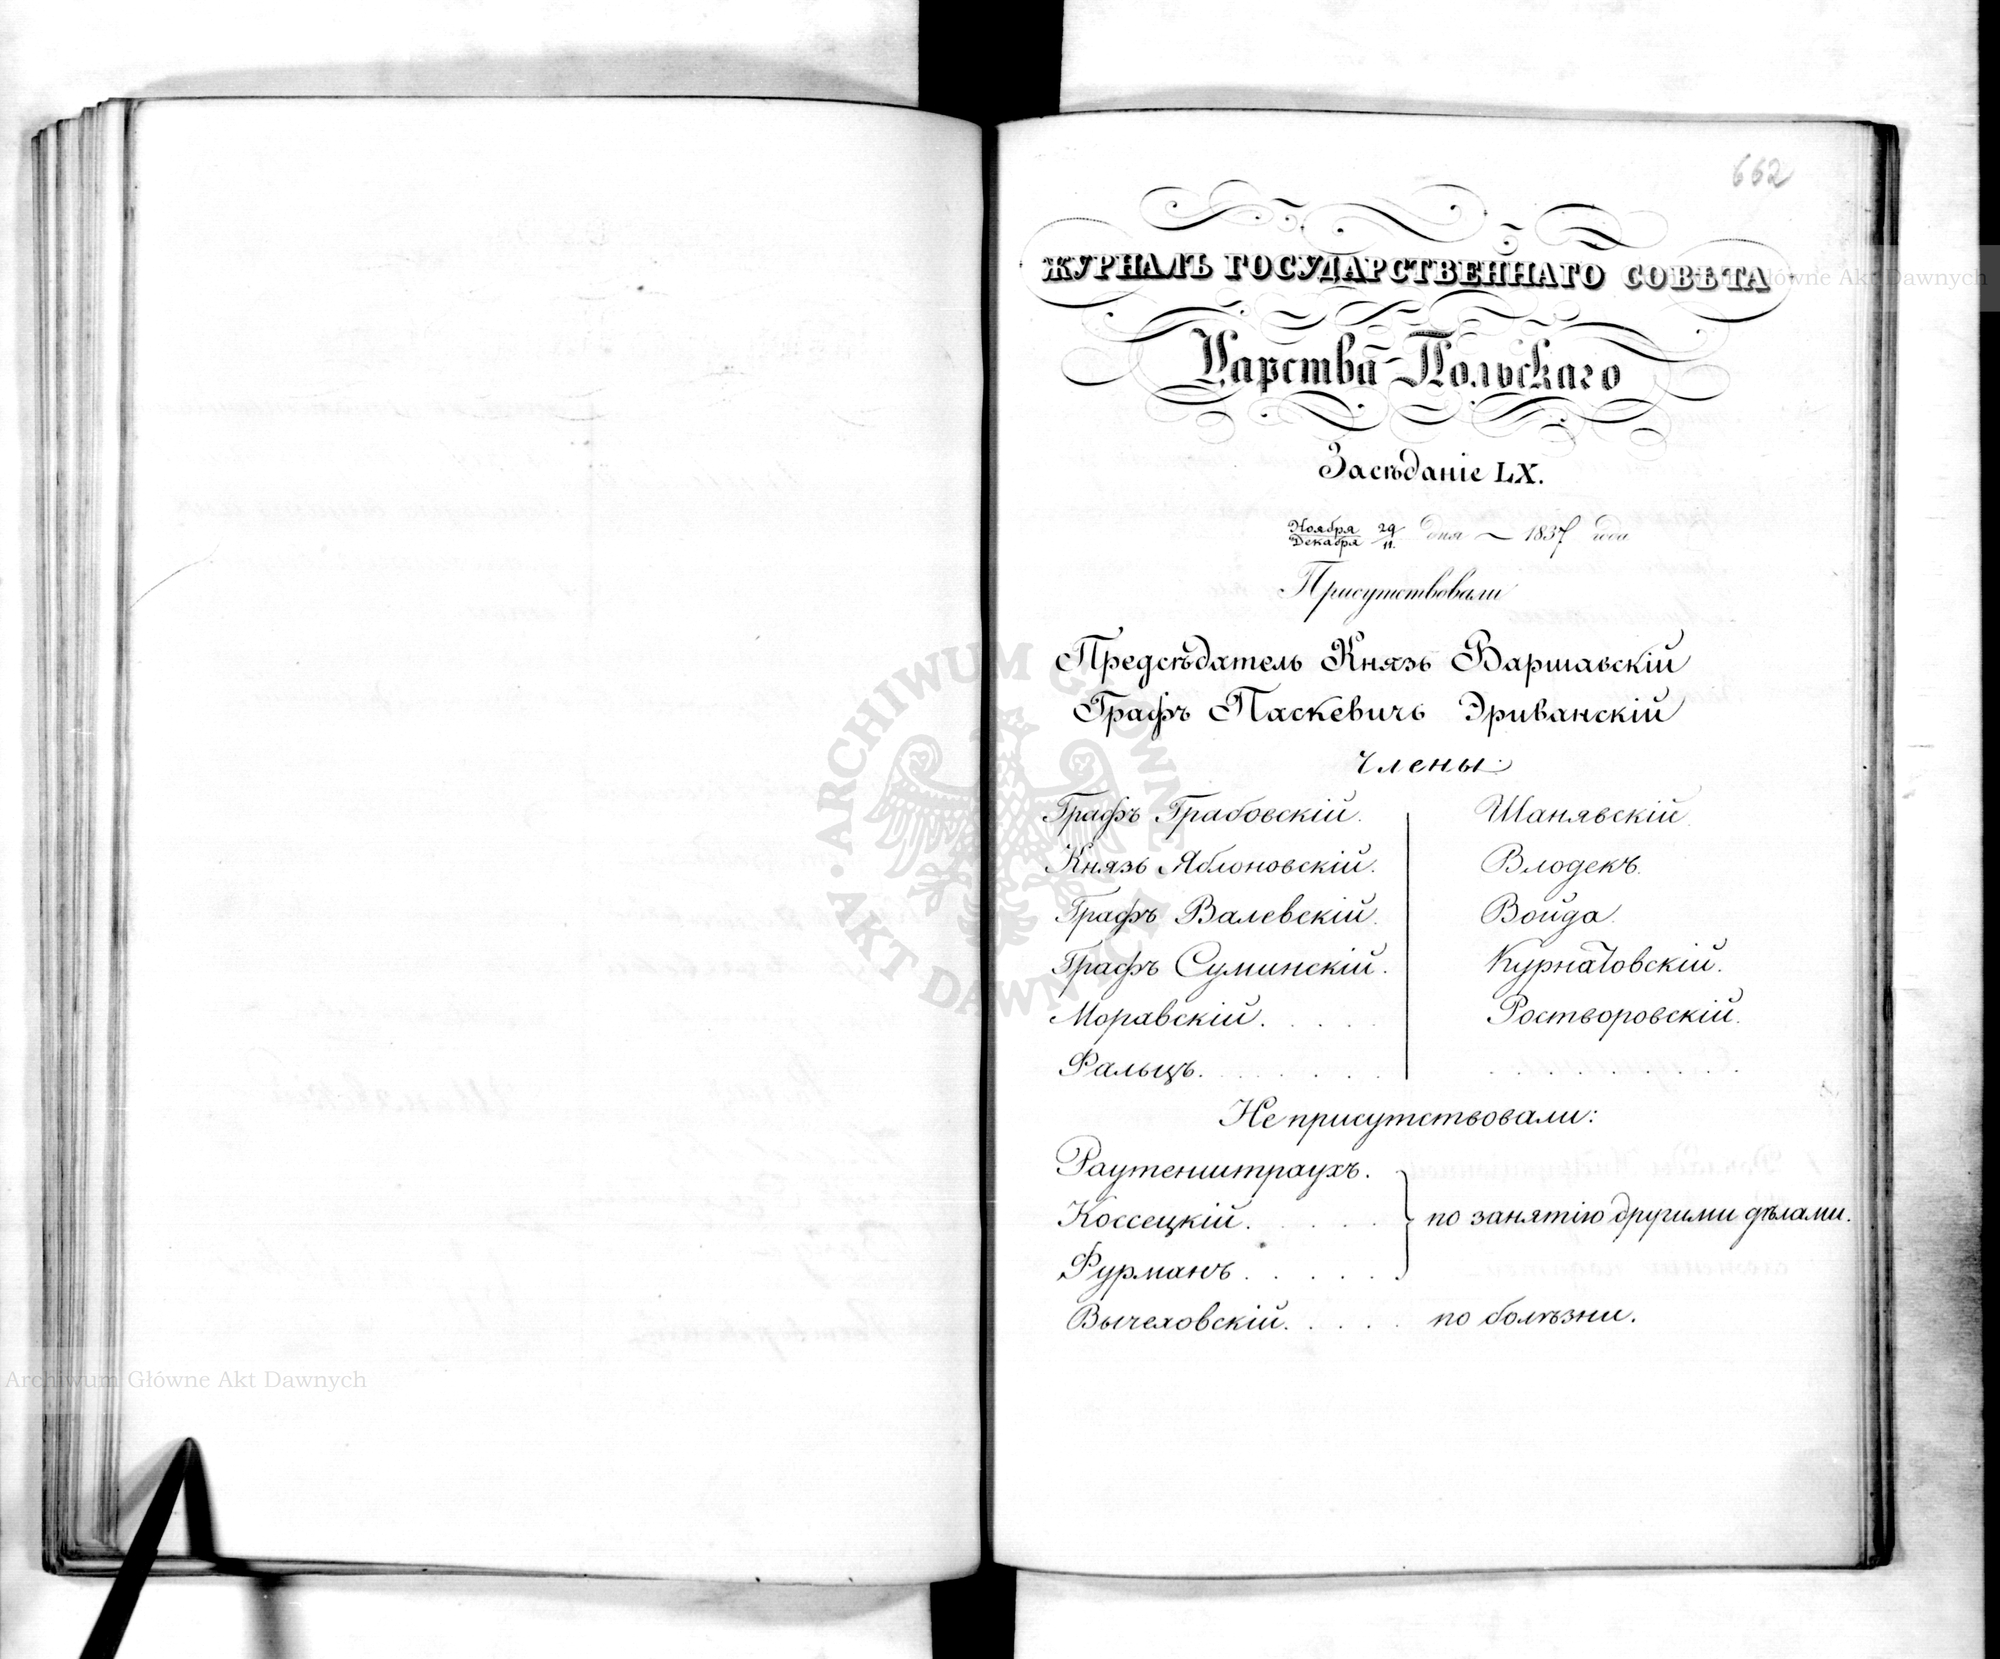 662
ЖУРНАЛЪ ГОСУДАРСТВЕННАГО СОВѢТА
Царства Польскаго
Засѣданіе LX.
Ноября 29 / Декабря 11. дня 1837 года
Присутствовали
Предсѣдатель Князь Варшавскій
Графъ Паскевичъ Эриванскій
Члены:
Графъ Грабовскій. Шанявскій.
Князь Яблоновскій. Влодекъ.
Графъ Валевскій. Войда.
Графъ Суминскій. Курнатовскій.
Моравскій. . . . . Ростворовскій.
Фальцъ. . . . . . .
Не присутствовали:
Раутенштраухъ.
Коссецкій. . . . . по занятію другими дѣлами.
Фурманъ. . . . .
Вычеховскій. . . . . по болѣзни.
ARCHIWUM GŁÓWNE AKT DAWNYCH
Archiwum Główne Akt Dawnych
Główne Akt Dawnych